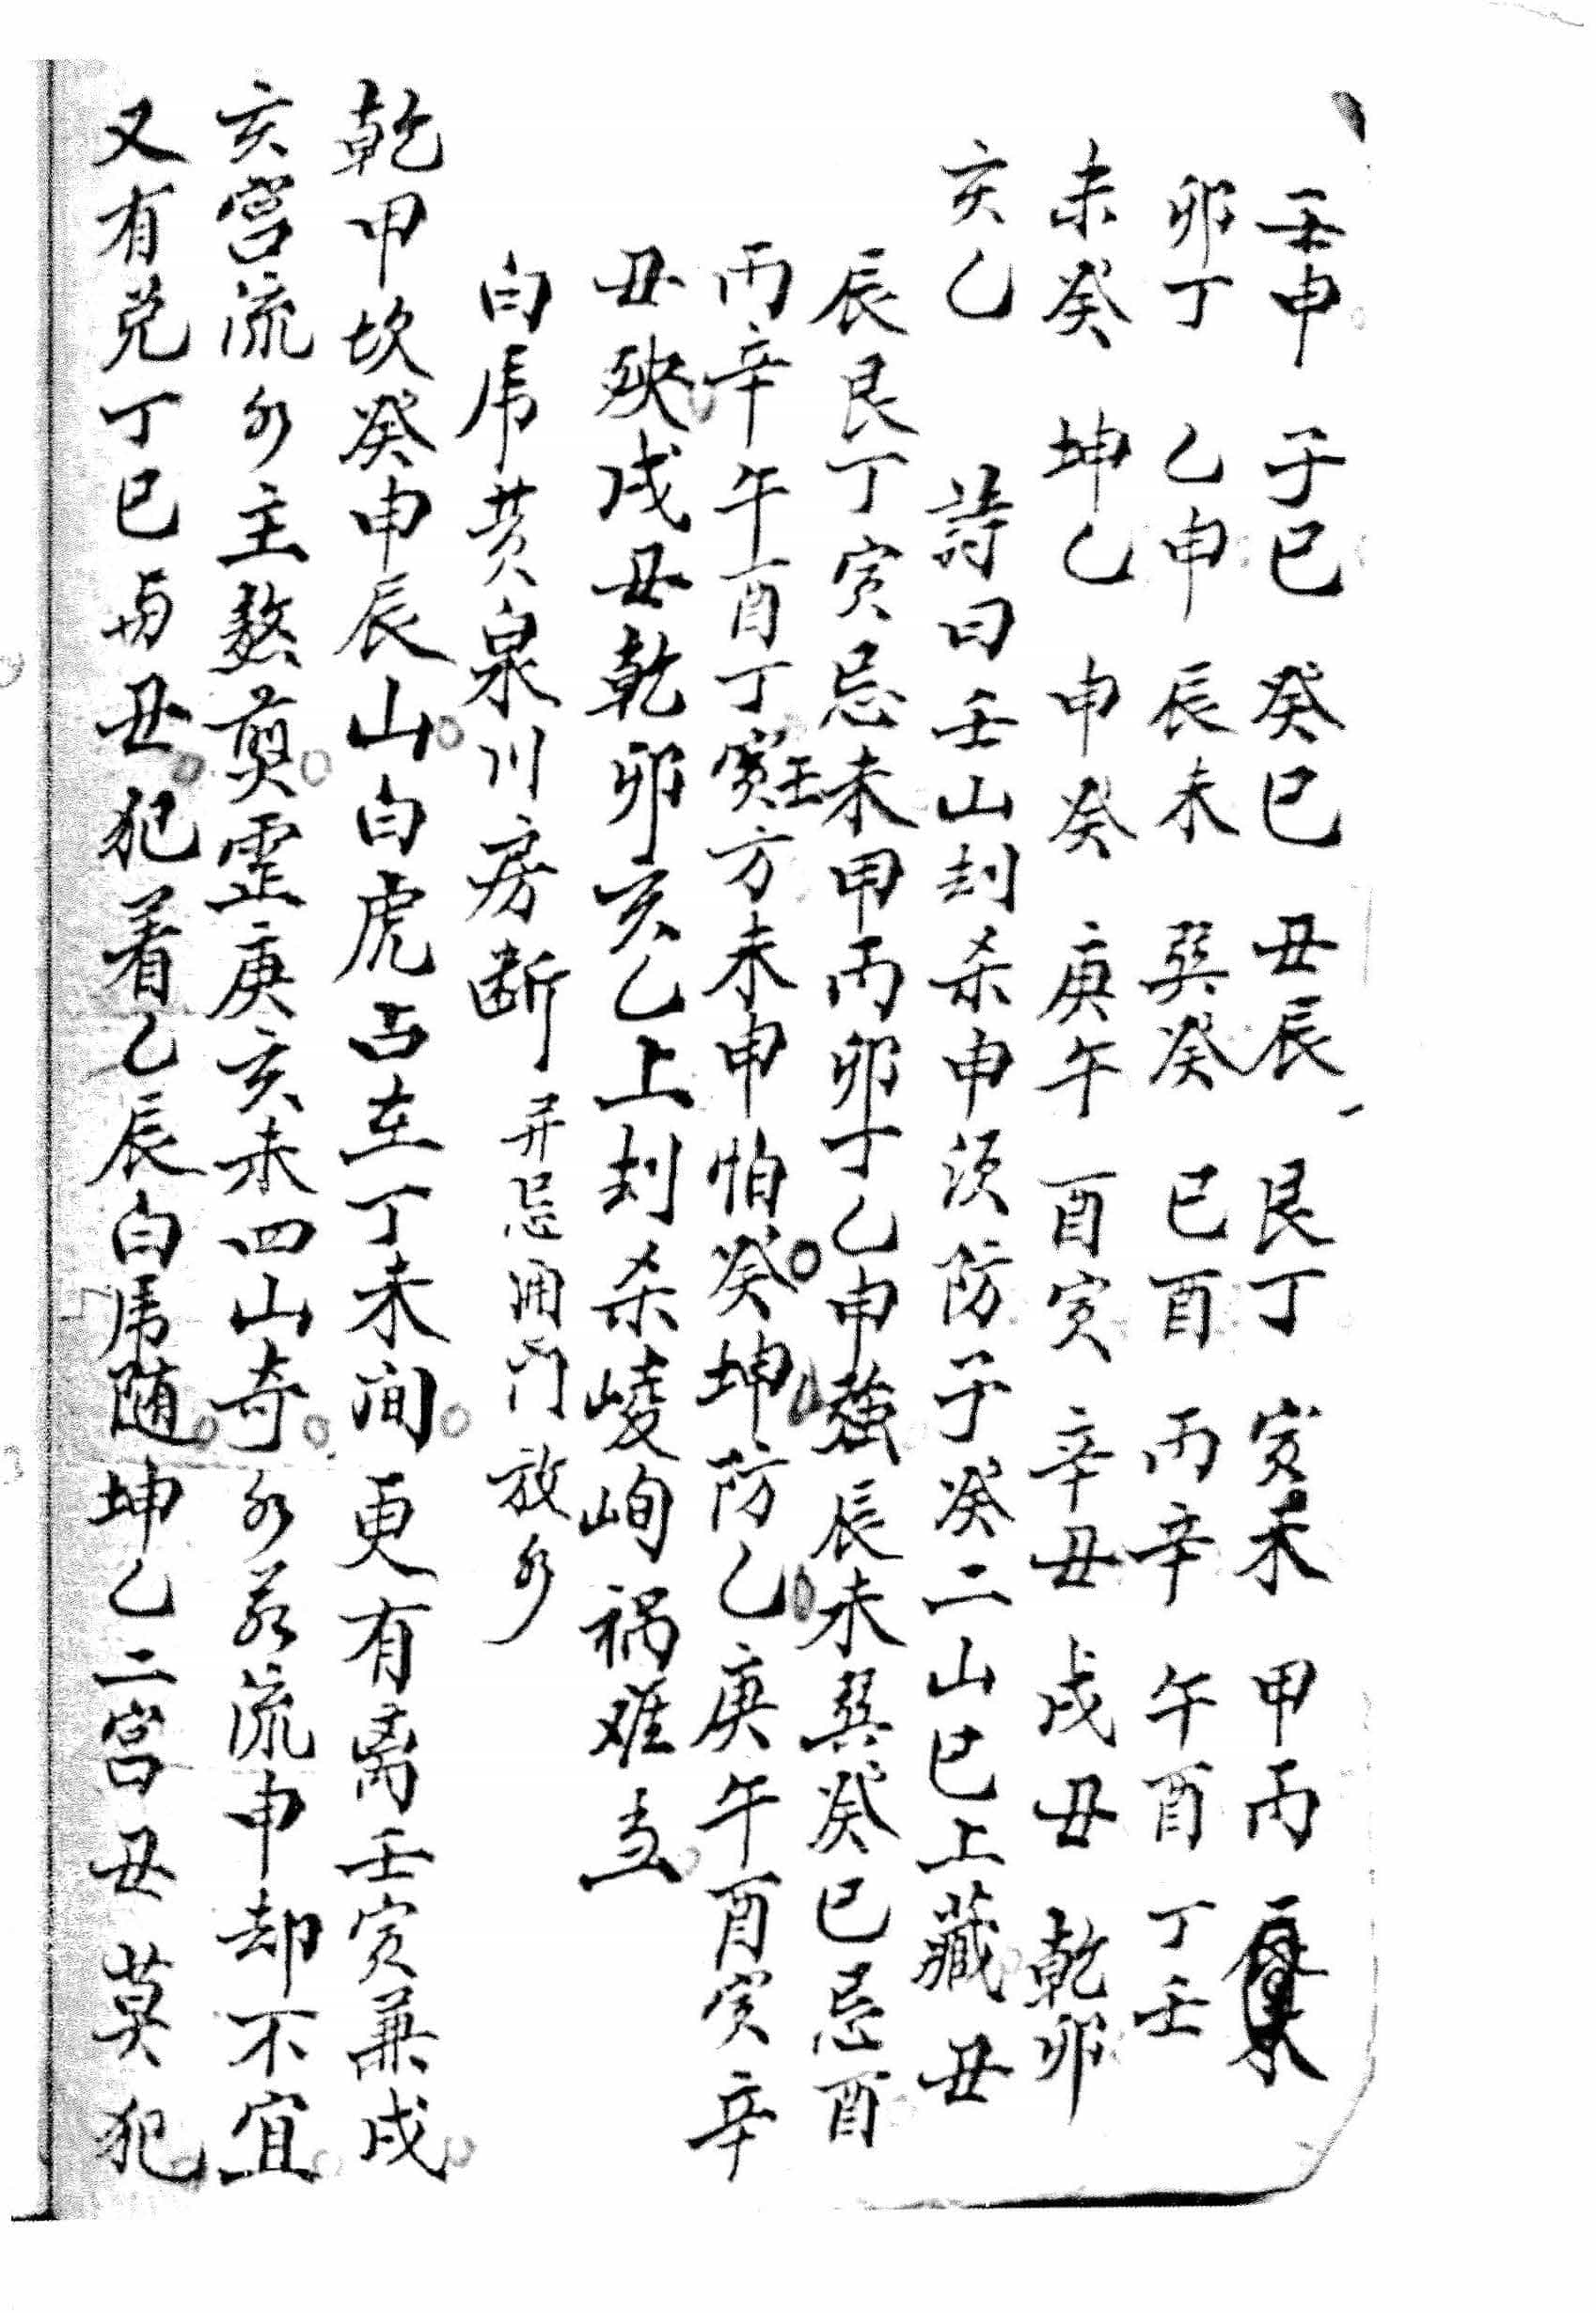 壬申 子巳 癸巳 丑辰 艮丁 寅未 甲丙
卯丁 乙申 辰未 巽癸 巳酉 丙辛 午酉 丁壬
未癸 坤乙 申癸 庚午 酉寅 辛丑 戌丑 乾卯
亥乙 詩曰壬山刦杀申须防子癸二山巳上藏丑
辰艮丁寅忌未甲丙卯丁乙申強辰未巽癸巳忌酉
丙辛午酉丁寅壬方未申怕癸坤防乙庚午酉寅辛
丑殃戌丑乾卯亥乙上刦杀崚峋祸难当
白虎黄泉川房断 并忌用门放水
乾甲坎癸申辰山白虎占在丁未间更有离壬寅兼戌
亥宮流水主熬煎震庚亥未四山奇水若流申却不宜
又有兑丁巳与丑犯着乙辰白虎随坤乙二宮丑莫犯